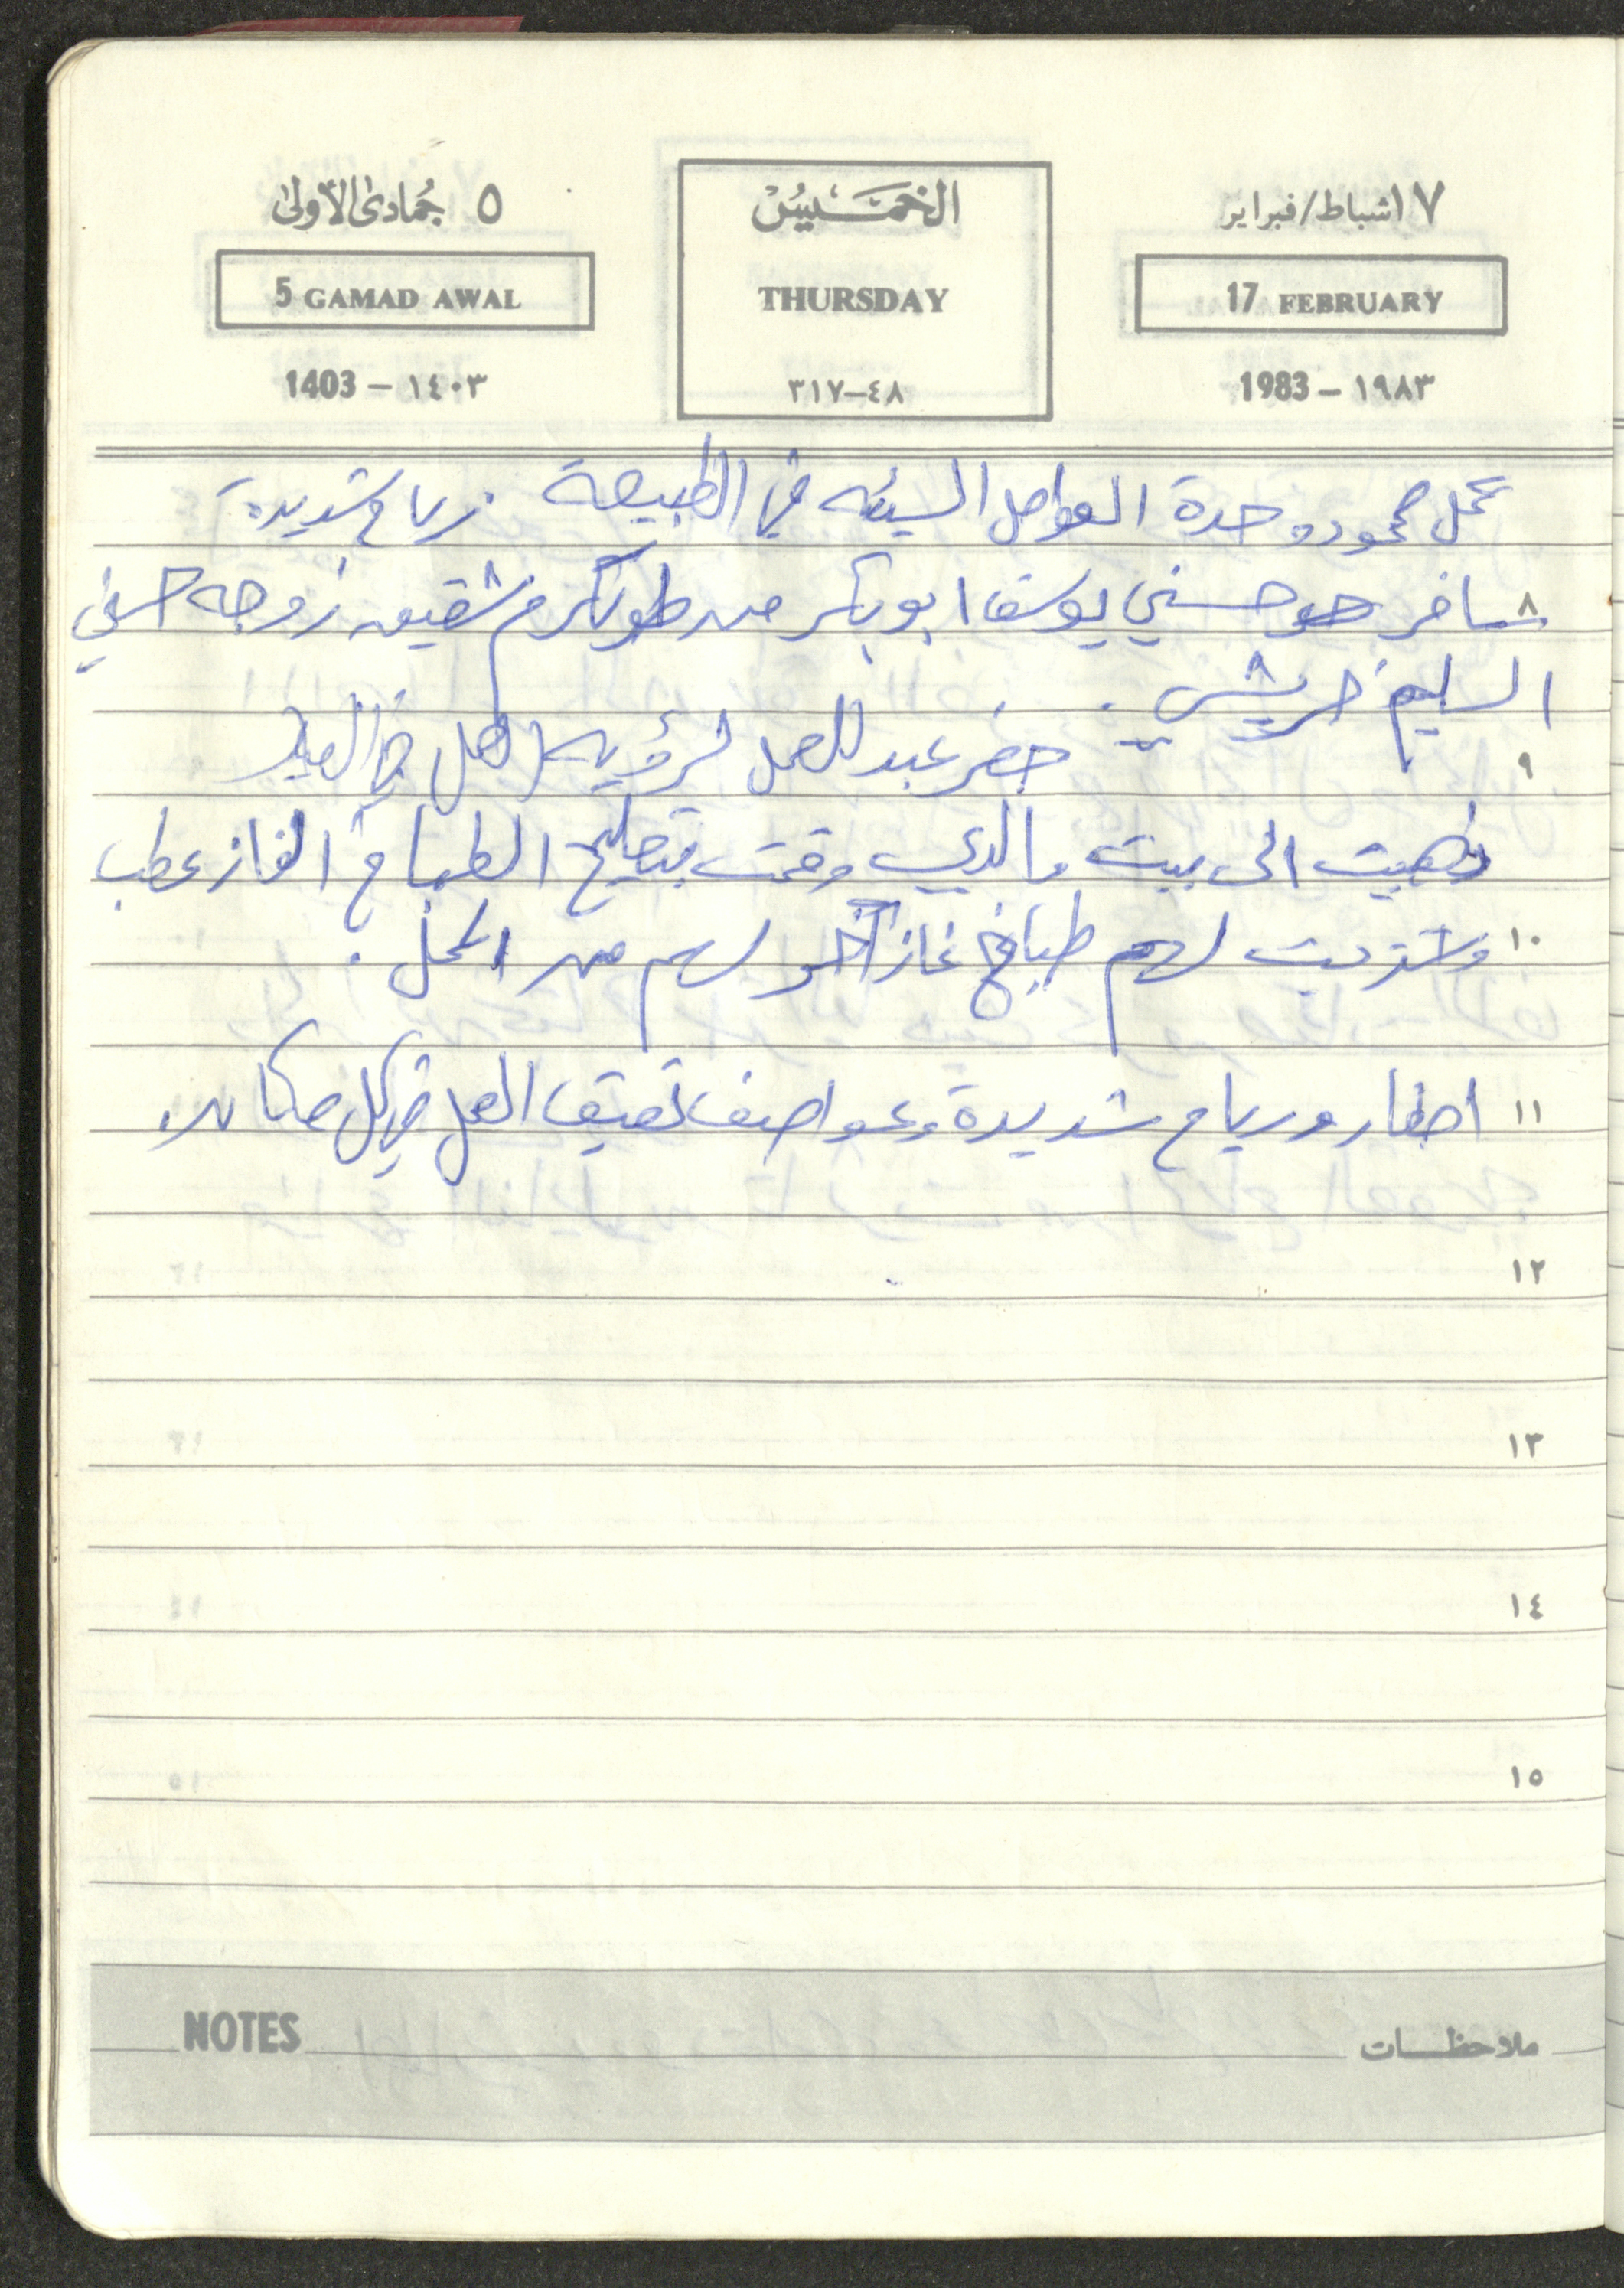 ١٧ شباط/فبراير
17 FEBRUARY
1983 – ١٩٨٣
الخميس
THURSDAY
٤٨–٣١٧
٥ جُمادى الأولى
5 GAMAD AWAL
1403 – ١٤٠٣
عمل محمود وحدة العوامل السيئه في الطبيعة . رياح شديدة
٨ سافر حسني يوسف ابو بكر من طولكرم شقيق زوجه حسني
السليم خريشي .
٩ حضر عبد للعمل لرؤيه العمل في
ذهبت الى بيت والدي وقمت بتصليح الطباخ الغاز عطب
١٠ وشتريت لهم طباخ غاز آخر لهم من المحل .
١١ امطار ورياح شديدة وعواصف تعيق العمل في كل مكان .
١٢
١٣
١٤
١٥
ملاحظات
NOTES